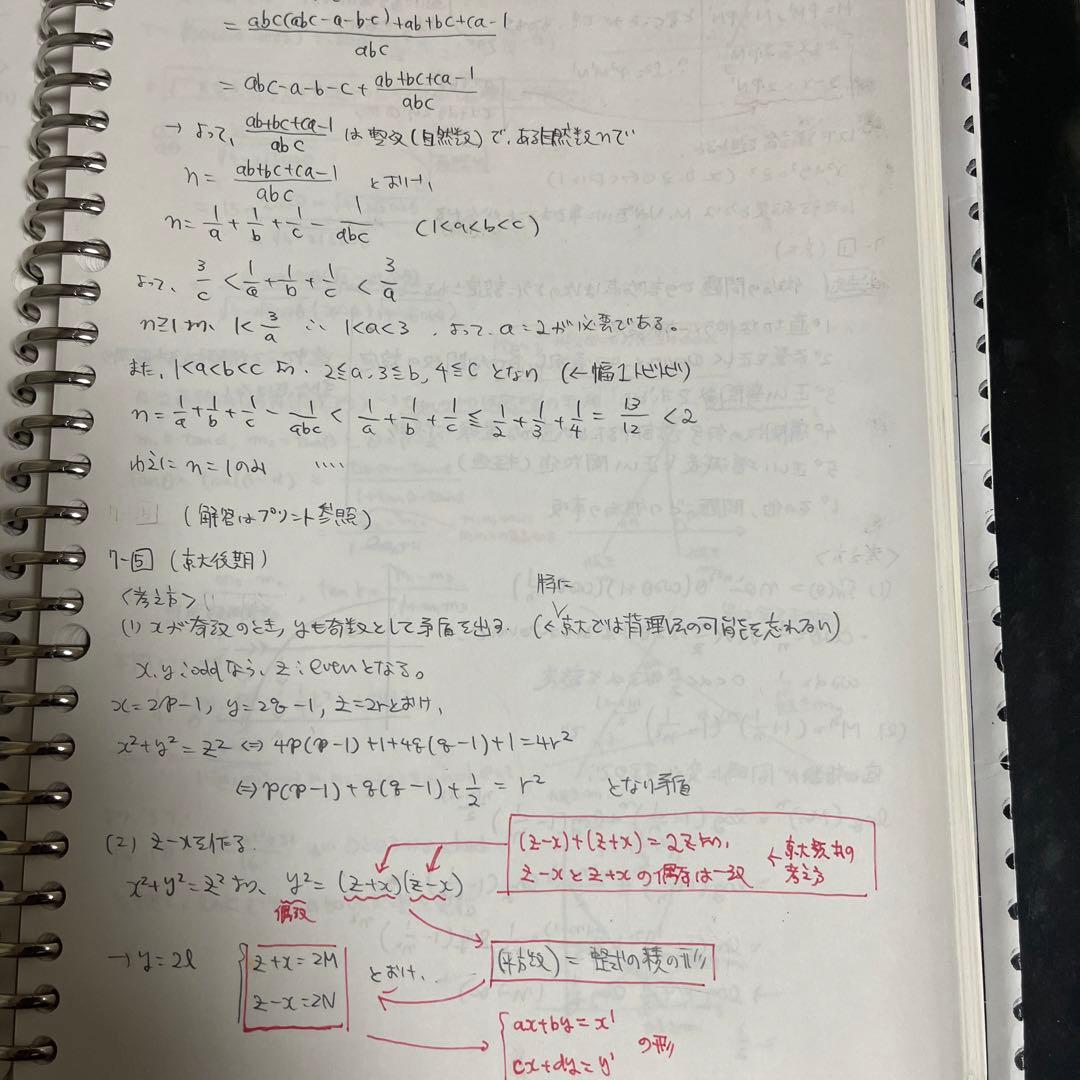 = abc(abc-a-b-c)+ab+bc+ca-1 / abc
= abc-a-b-c + ab+bc+ca-1 / abc
→ よって、 ab+bc+ca-1 / abc は整数(自然数)で、ある自然数nで
n = ab+bc+ca-1 / abc とおけ、
n = 1/a + 1/b + 1/c - 1/abc (1<a<b<c)
よって、 3/c < 1/a + 1/b + 1/c < 3/a
n≧1より、 1< 3/a ∴ 1<a<3 、よって、a=2が必要である。
また、1<a<b<c より、 2≦a, 3≦b, 4≦c となり (←幅1ビビ)
n = 1/a + 1/b + 1/c - 1/abc < 1/a + 1/b + 1/c ≦ 1/2 + 1/3 + 1/4 = 13/12 < 2
ゆえに n=1のみ ....
(解答はプリント参照)
7-5 (京大後期)
<考え方>
(1) xが奇数のとき, yも奇数として矛盾を出す. (←京大では背理法の可能を忘れるな)
特に
x, y : oddなら、z : evenとなる。
x=2p-1, y=2q-1, z=2rとおけ、
x²+y²=z² ⇔ 4p(p-1)+1+4q(q-1)+1=4r²
⇔ p(p-1)+q(q-1)+ 1/2 = r² となり矛盾
(2) z-xを作る.
(z-x)+(z+x)=2zより,
z-xとz+xの偶奇は一致
←京大数theの
考え方
x²+y²=z²より、 y²=(z+x)(z-x)
偶数
→ y=2l
z+x=2M
z-x=2N
とおけ、
(平方数) = 整式の積の形
ax+by=x'
cx+dy=y'
の形